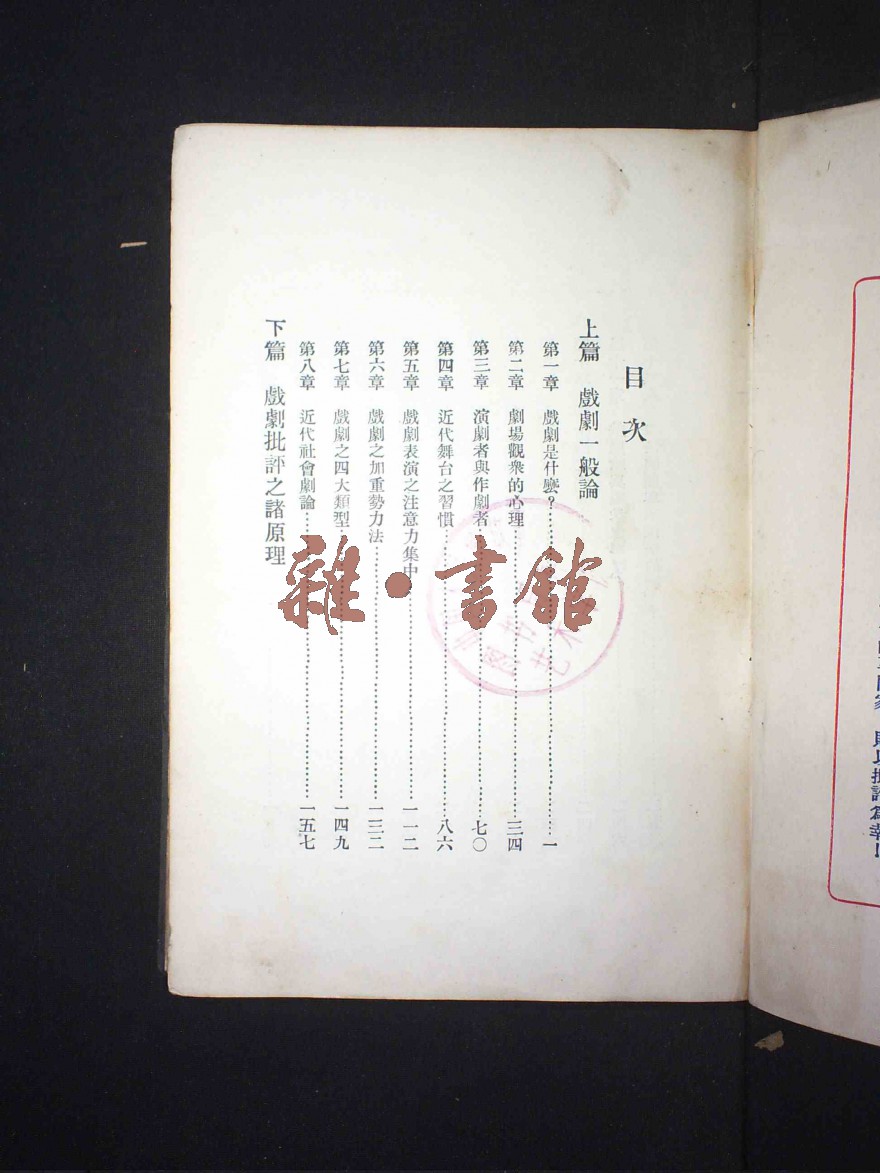 目次
上篇 戲劇一般論
第一章 戲劇是什麽?……一
第二章 劇場觀衆的心理……三四
第三章 演劇者與作劇者……七〇
第四章 近代舞台之習慣……八六
第五章 戲劇表演之注意力集中……一一二
第六章 戲劇之加重勢力法……一三二
第七章 戲劇之四大類型……一四九
第八章 近代社會劇論……一五七
下篇 戲劇批評之諸原理
雜·書館